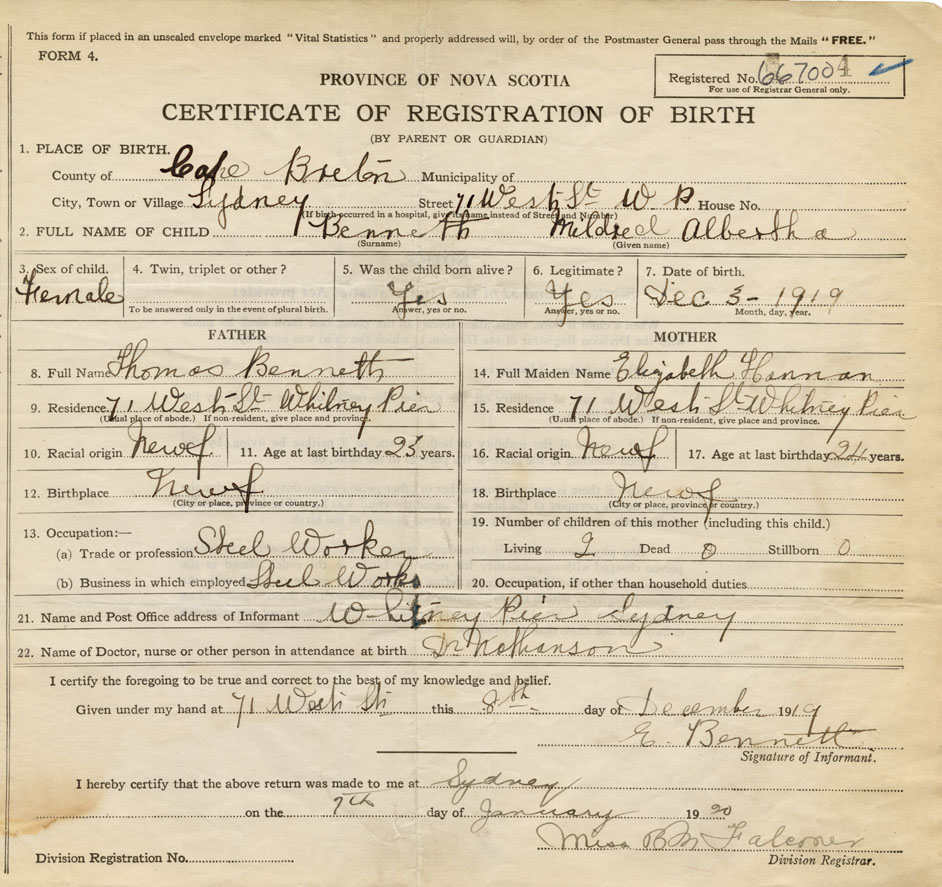 This form if placed in an unsealed envelope marked "Vital Statistics" and properly addressed will, by order of the Postmaster General pass through the Mails "FREE."
FORM 4.
PROVINCE OF NOVA SCOTIA
Registered No. 667004
For use of Registrar General only.
CERTIFICATE OF REGISTRATION OF BIRTH
(BY PARENT OR GUARDIAN)
1. PLACE OF BIRTH.
County of Cape Breton Municipality of
City, Town or Village Sydney Street 71 West St W P House No.
(If birth occurred in a hospital, give its name instead of Street and Number)
2. FULL NAME OF CHILD Bennett Mildred Albertha
(Surname) (Given name)
3. Sex of child. 4. Twin, triplet or other? 5. Was the child born alive? 6. Legitimate? 7. Date of birth.
Female Yes Yes Dec 3 - 1919
To be answered only in the event of plural birth. Answer, yes or no. Answer, yes or no. Month, day, year.
FATHER MOTHER
8. Full Name Thomas Bennett 14. Full Maiden Name Elizabeth Hannan
9. Residence 71 West St Whitney Pier 15. Residence 71 West St Whitney Pier
(Usual place of abode.) If non-resident, give place and province. (Usual place of abode.) If non-resident, give place and province.
10. Racial origin Newf 11. Age at last birthday 23 years. 16. Racial origin Newf 17. Age at last birthday 24 years.
12. Birthplace Newf 18. Birthplace Newf
(City or place, province or country.) (City or place, province or country.)
13. Occupation:— 19. Number of children of this mother (including this child.)
(a) Trade or profession Steel Worker Living 2 Dead 0 Stillborn 0
(b) Business in which employed Steel Works 20. Occupation, if other than household duties
21. Name and Post Office address of Informant Whitney Pier Sydney
22. Name of Doctor, nurse or other person in attendance at birth Dr Nathanson
I certify the foregoing to be true and correct to the best of my knowledge and belief.
Given under my hand at 71 West St this 8th day of December 1919
E. Bennett
Signature of Informant.
I hereby certify that the above return was made to me at Sydney
on the 7th day of January 1920
Miss B M Falconer
Division Registration No. Division Registrar.